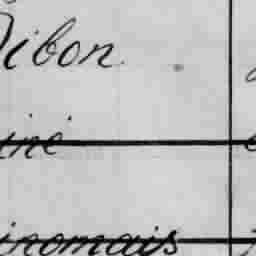 Dibon.
iné
inomais